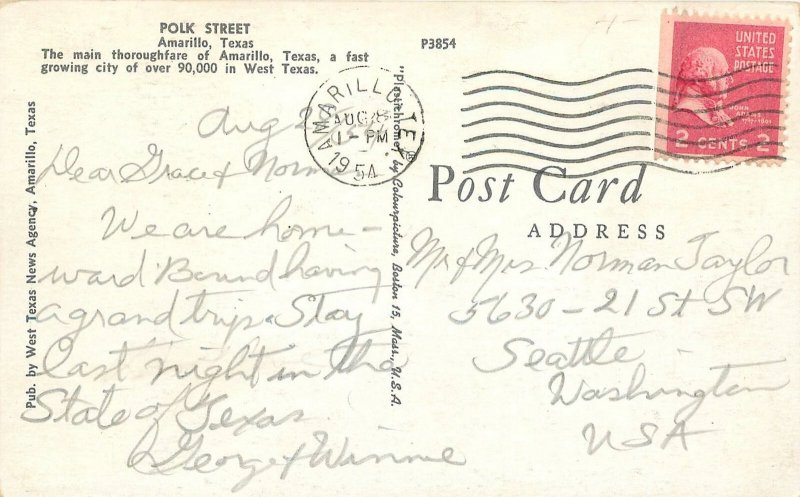 POLK STREET
Amarillo, Texas
The main thoroughfare of Amarillo, Texas, a fast
growing city of over 90,000 in West Texas.
P3854
UNITED
STATES
POSTAGE
JOHN
ADAMS
2 CENTS 2
AMARILLO, TEX.
AUG 28
1 - PM
1954
Aug 28
Dear Grace & Norman
We are home-
ward Bound having
a grand trip. Stay
last night in the
State of Texas
George & Winnie
Pub. by West Texas News Agency, Amarillo, Texas
"Plastichrome" by Colourpicture, Boston 15, Mass., U.S.A.
Post Card
ADDRESS
Mr & Mrs Norman Taylor
5630 - 21 St SW
Seattle
Washington
USA